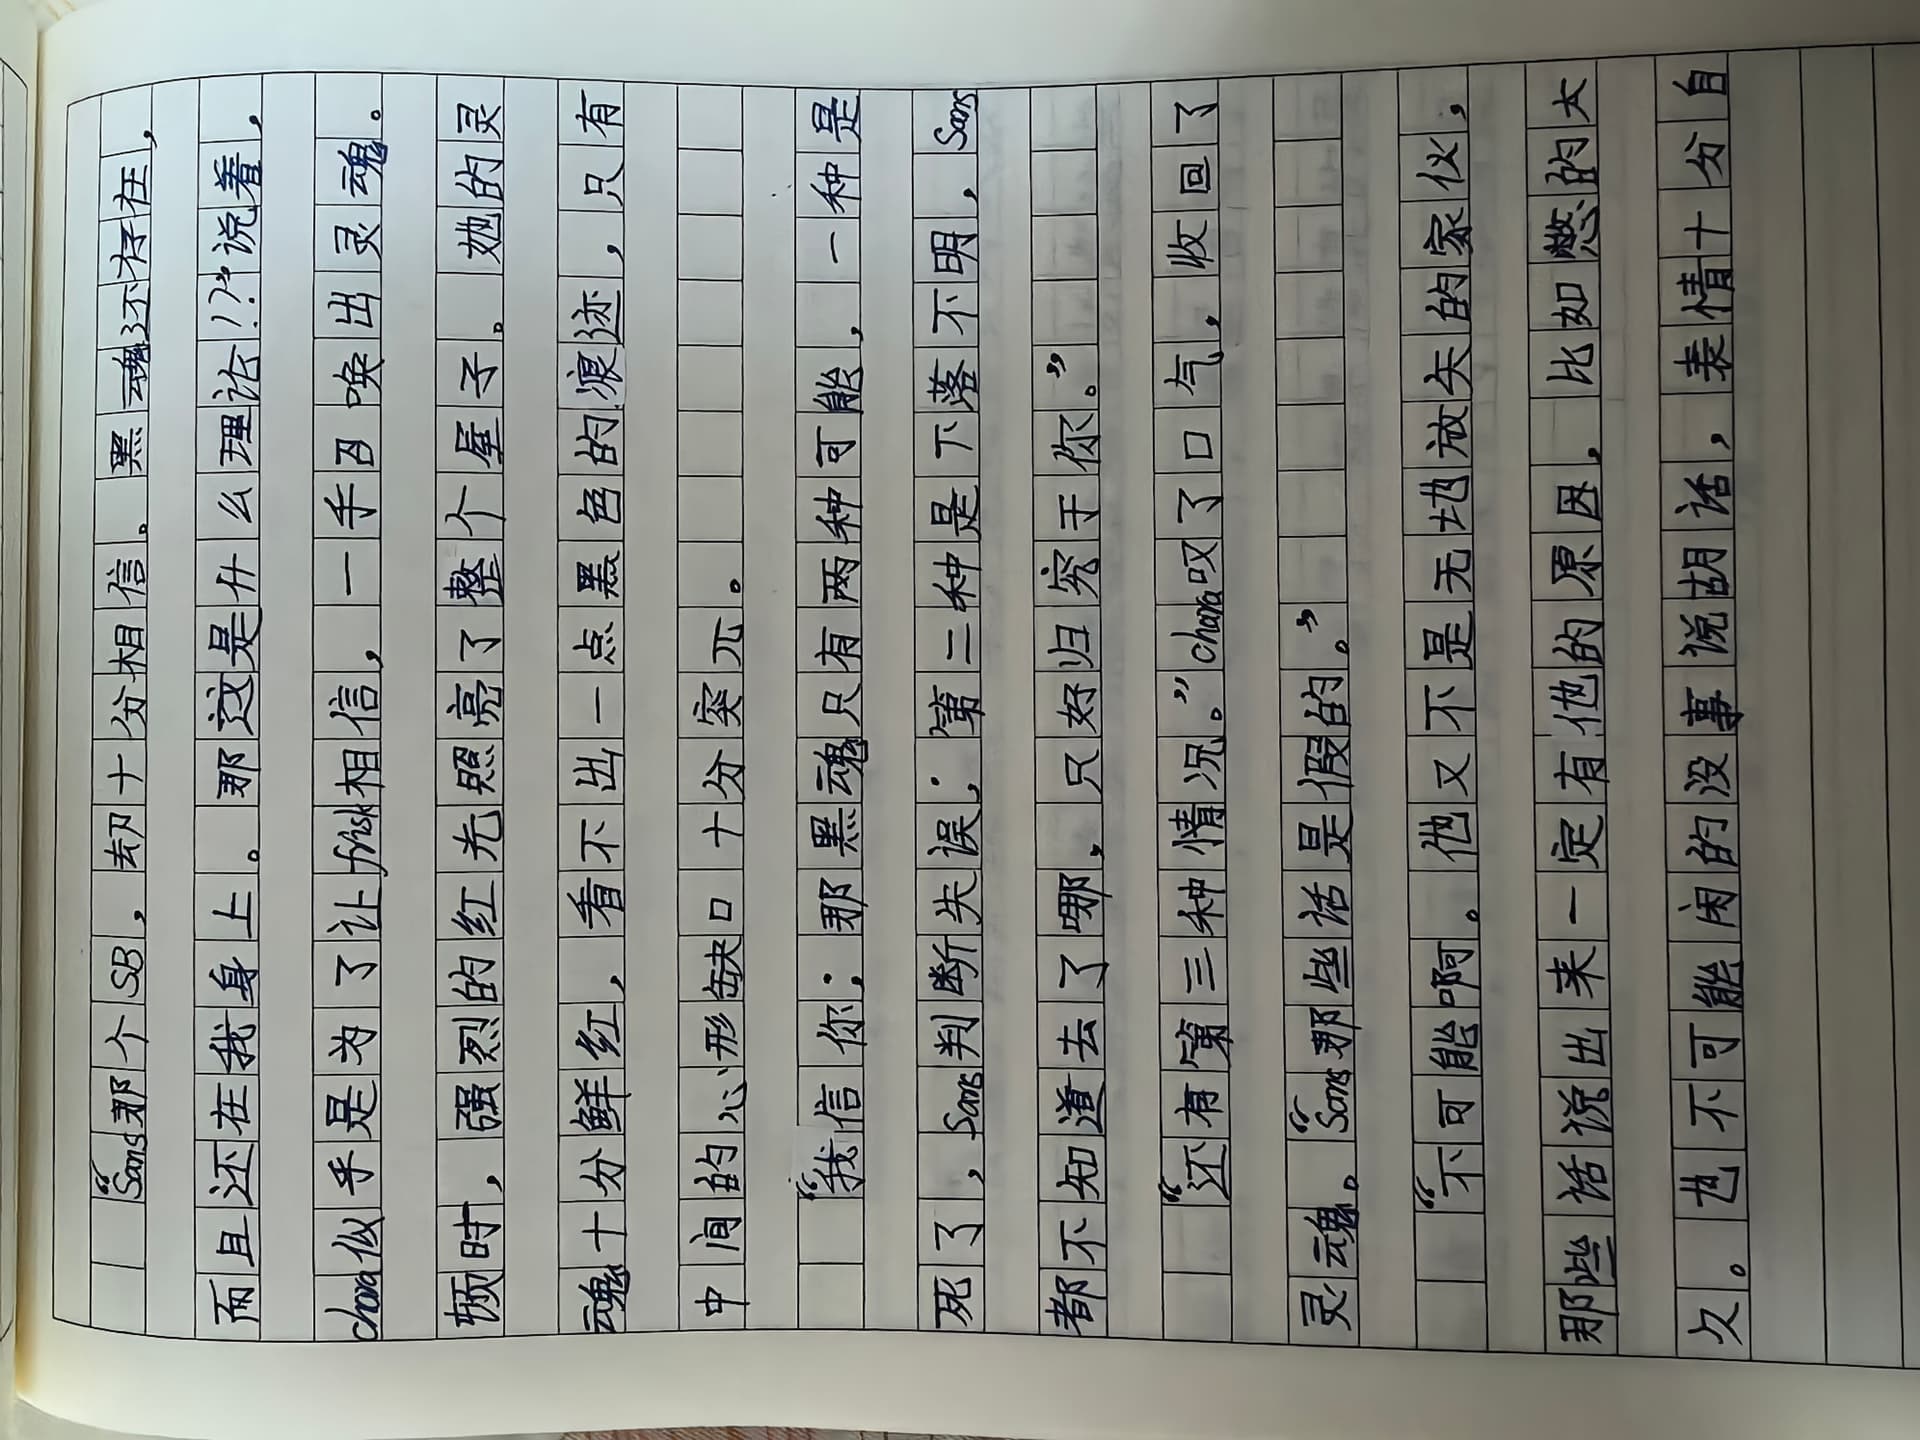 “Sans那个SB，却十分相信。黑魂还存在，
而且还在我身上。那这是什么理论!??”说着，
chara似乎是为了让frisk相信，一手召唤出灵魂。
顿时，强烈的红光照亮了整个屋子。她的灵
魂十分鲜红，看不出一点黑色的痕迹，只有
中间的心形缺口十分突兀。
“我信你；那黑魂只有两种可能，一种是
死了，Sans判断失误；第二种是下落不明，Sans
都不知道去了哪，只好归究于你。”
“还有第三种情况。”chara叹了口气，收回了
灵魂。“Sans那些话是假的。”
“不可能啊。他又不是无地放矢的家伙，
那些话说出来一定有他的原因，比如憋的太
久。也不可能闲的没事说胡话，表情十分自